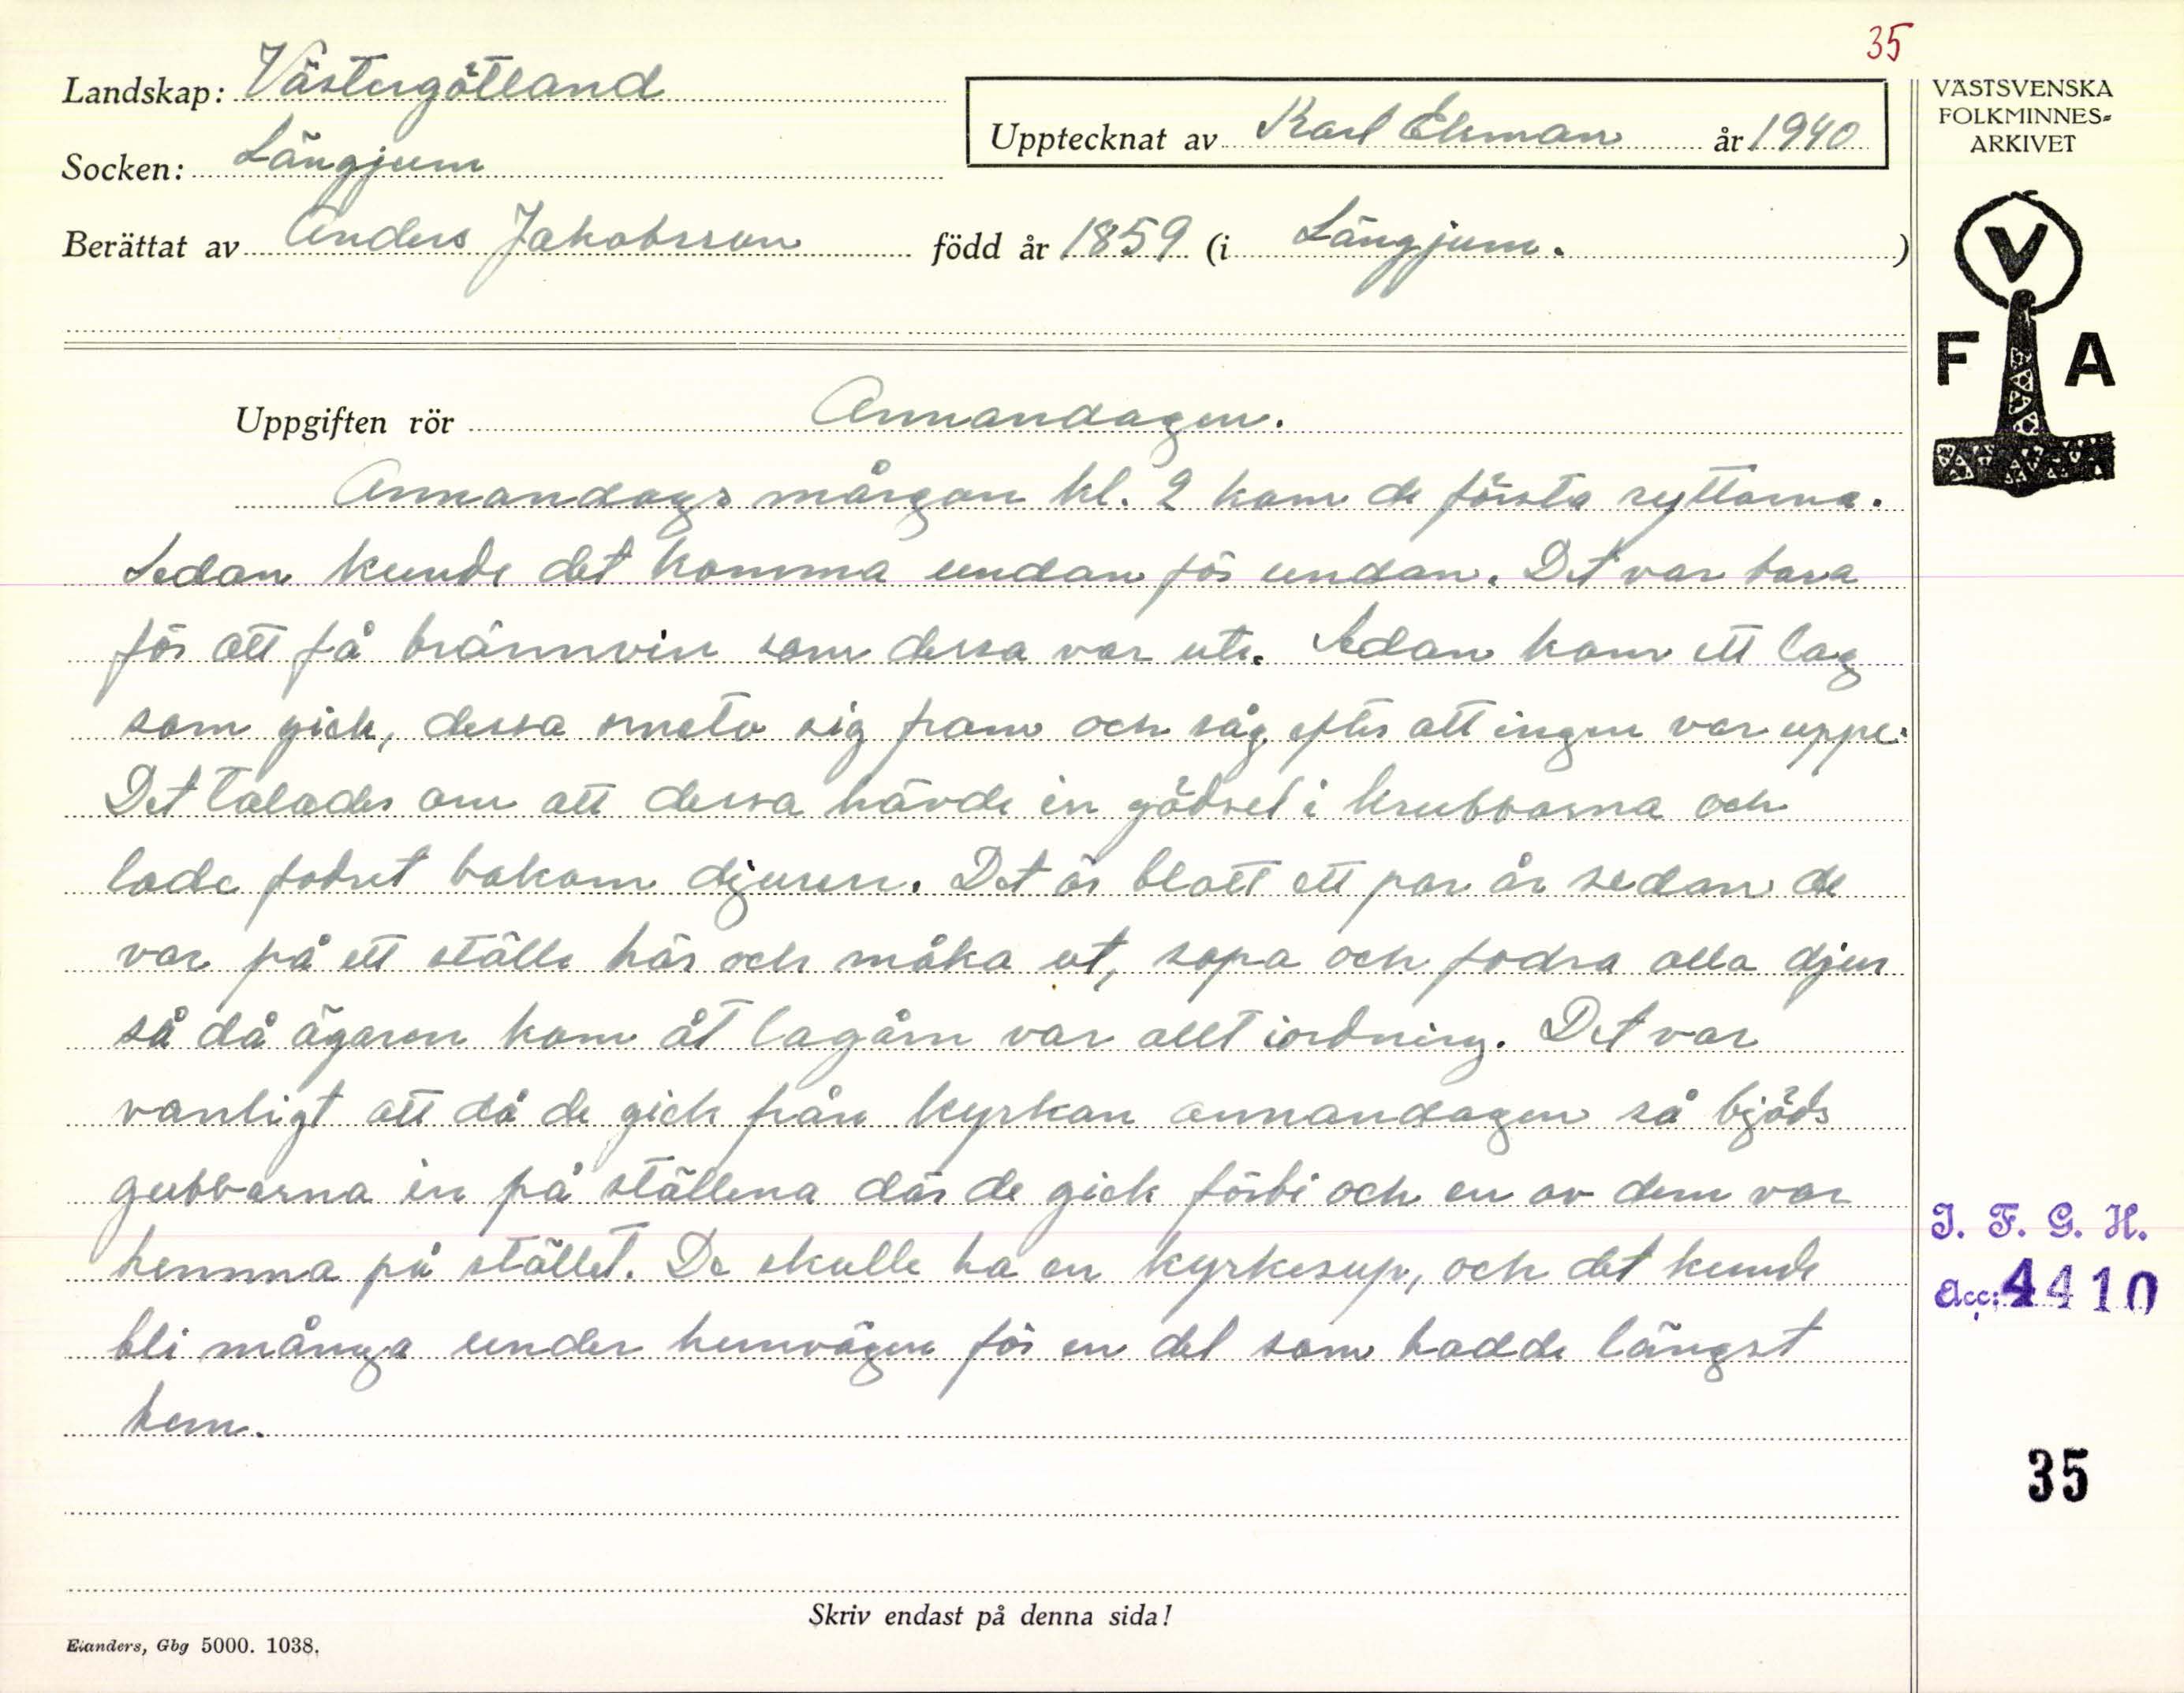 35
Landskap: Västergötland
Socken: Längjum
Upptecknat av Karl Ekman år 1940
Berättat av Anders Jakobsson född år 1859 (i Längjum. )
VÄSTSVENSKA
FOLKMINNES-
ARKIVET
V
F A
Uppgiften rör Annandagen.
Annandags mårgon kl. 2 kom de första ryttarna.
Sedan kunde det komma undan för undan. Det var bara
för att få brännvin som dessa var ute. Sedan kom ett lag
som gick, dessa smøto sig fram och såg efter att ingen var uppe.
Det talades om att dessa hävde in gödsel i krubborna och
lade fodret bakom djuren. Det är blott ett par år sedan de
var på ett ställe här och måka ut, sopa och fodra alla djur
så då ägaren kom åt lagårn var allt iordning. Det var
vanligt att då de gick från kyrkan annandagen så bjöds
gubbarna in på ställena där de gick förbi och en av dem var
hemma på stället. De skulle ha en kyrkesup, och det kunde
bli många under hemvägen för en del som hadde längst
hem.
I. F. G. H.
Acc: 4410
35
Skriv endast på denna sida!
Elanders, Gbg 5000. 1038.